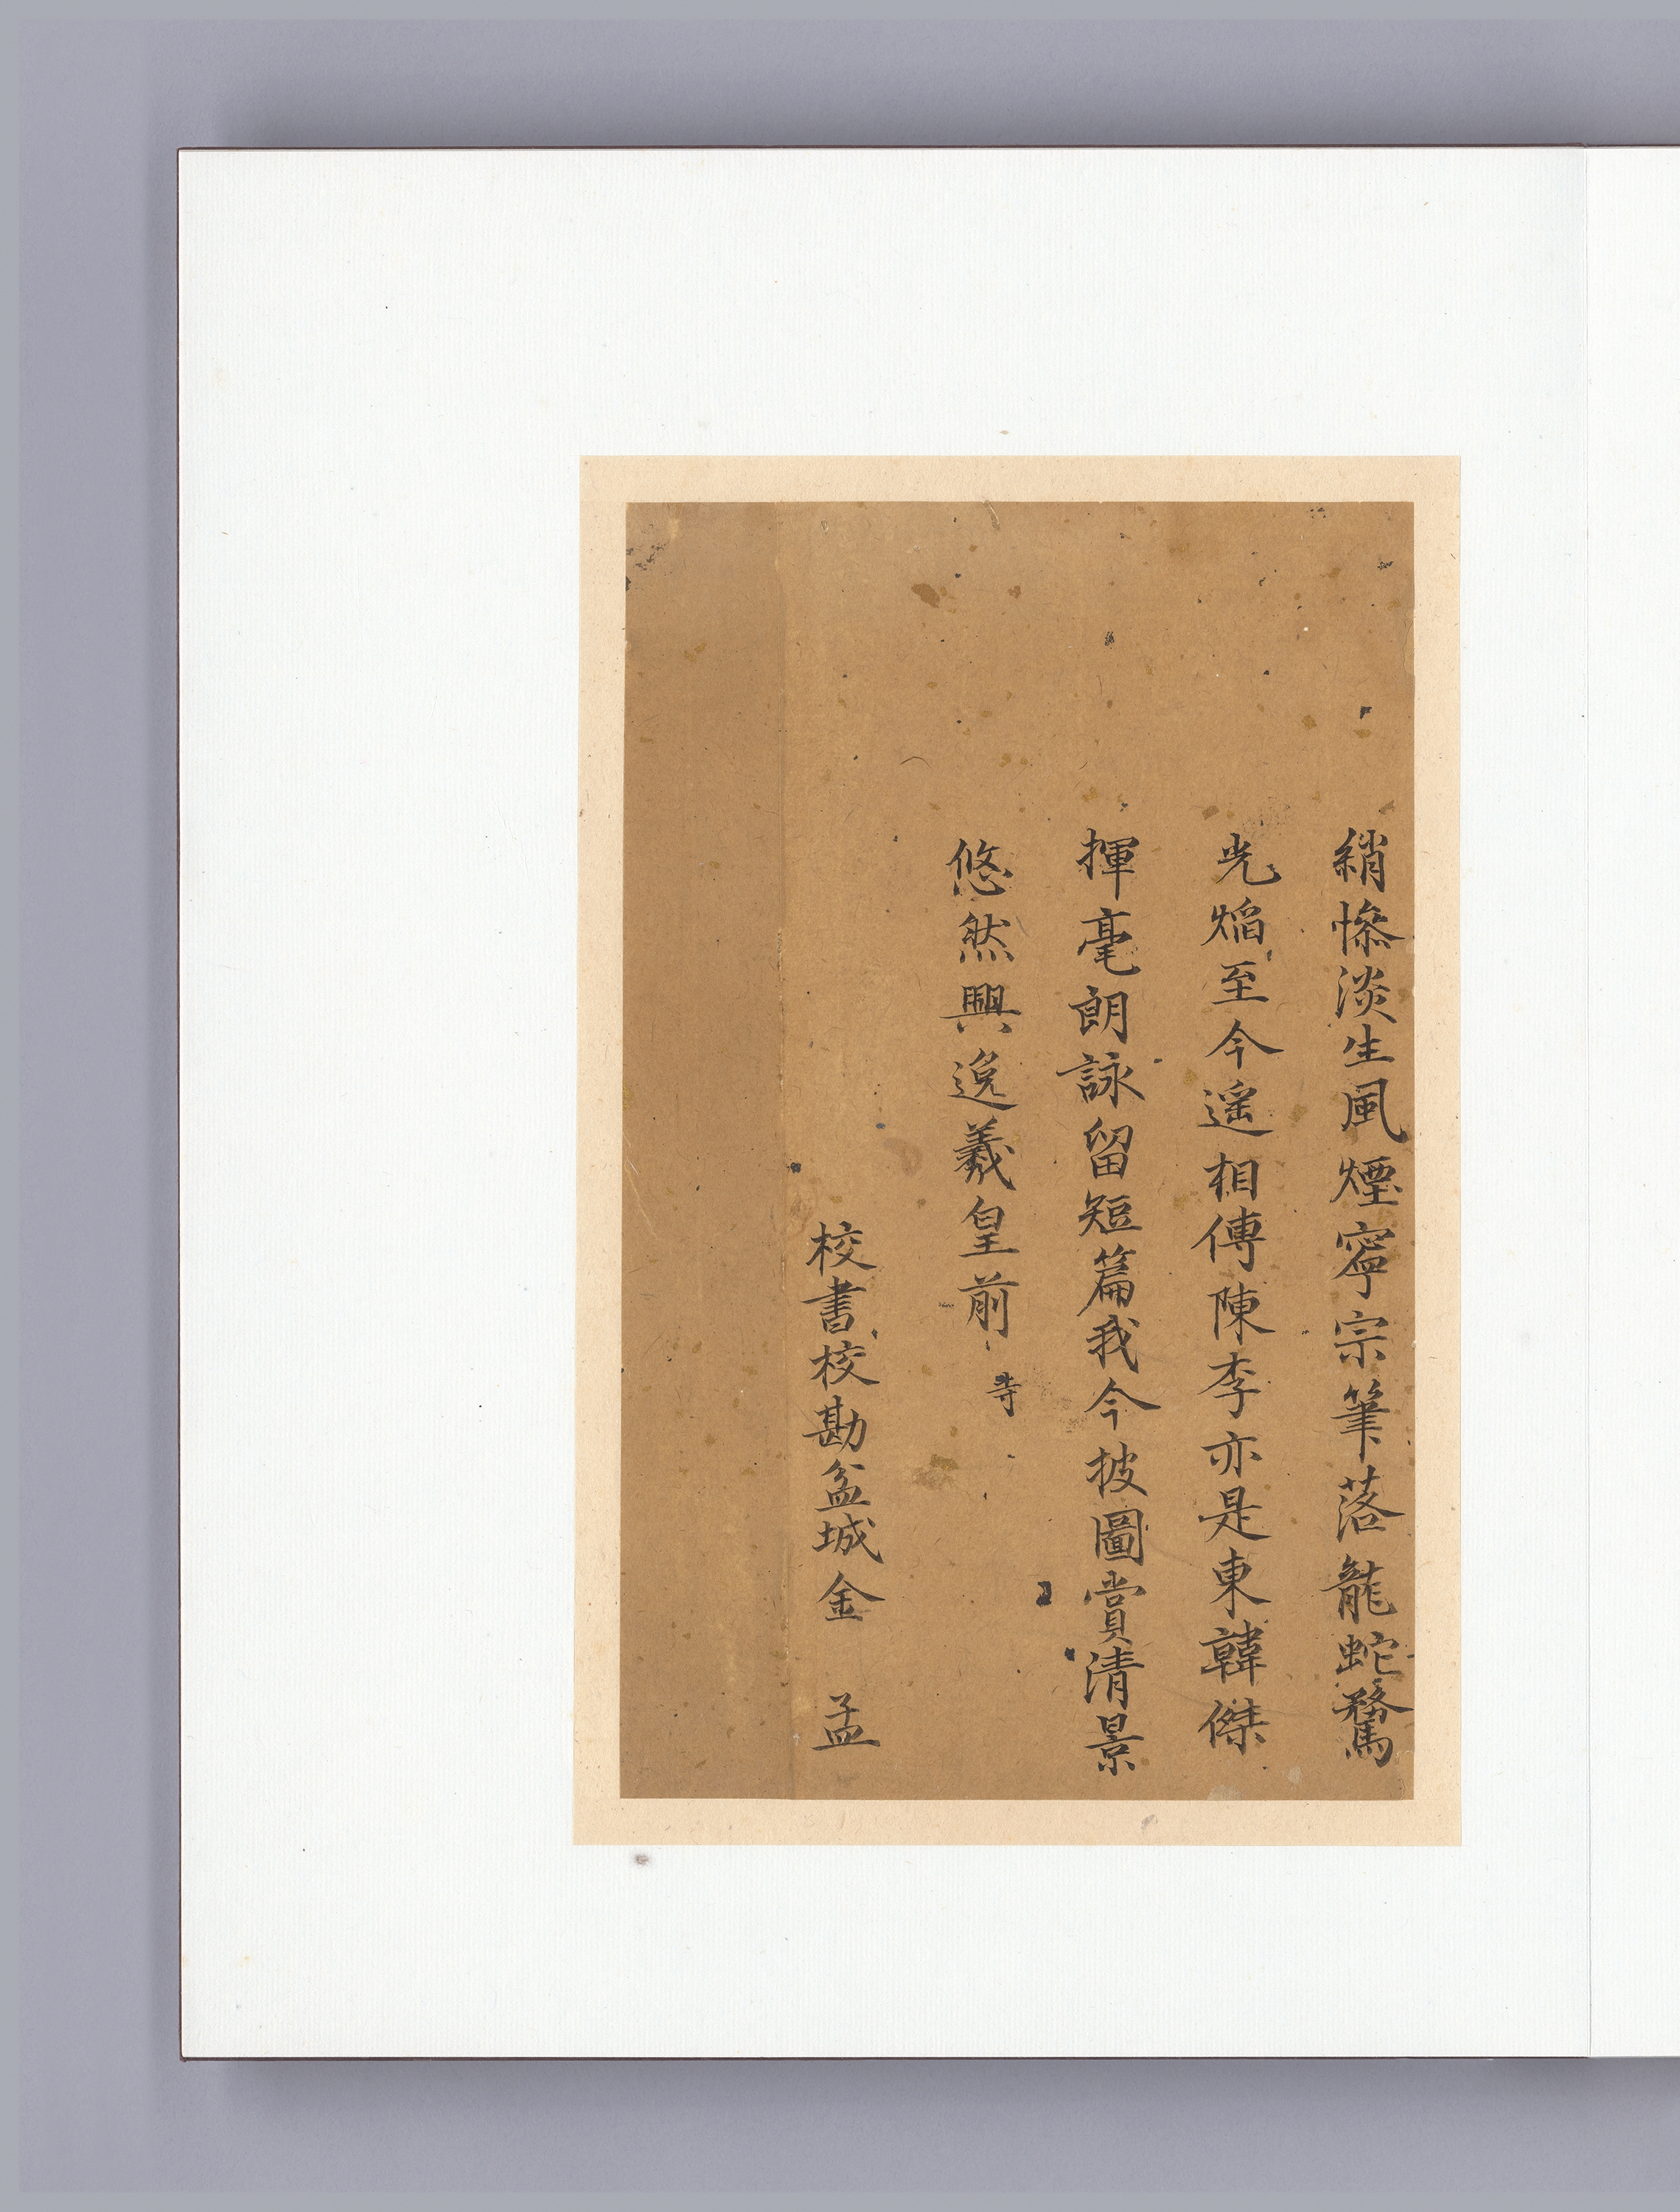 綃慘淡生風煙寧宗筆落龍蛇騖
光焰至今遥相傳陳李亦是東韓傑
揮毫朗詠留短篇我今披圖賞清景
悠然興逸羲皇前
寺
校書校勘盆城金 孟